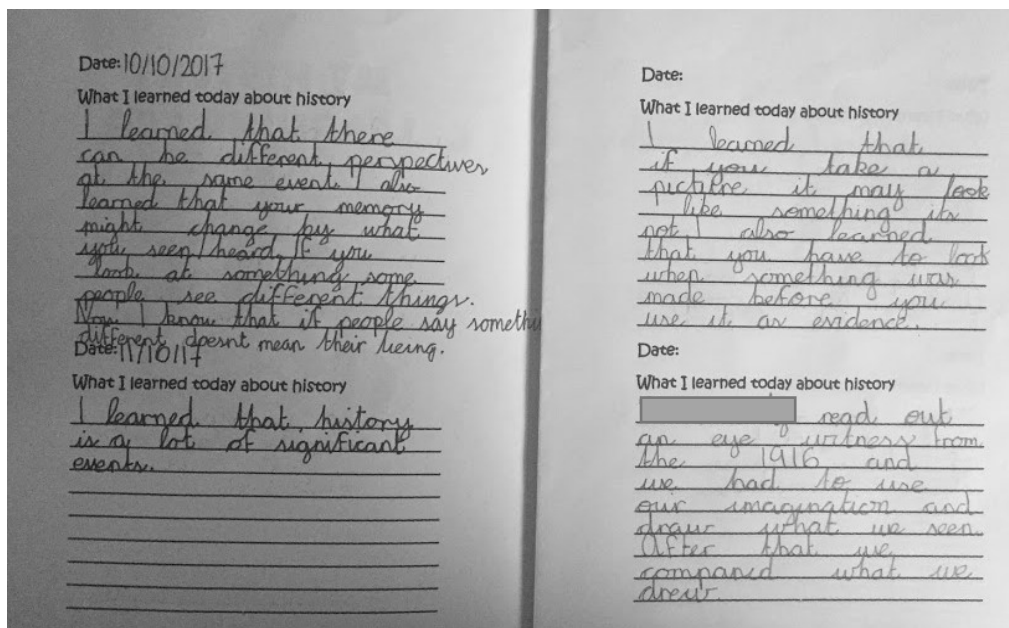 Date: 10/10/2017
What I learned today about history
I learned that there
can be different perspectives
at the same event. I also
learned that your memory
might change by what
you seen/heard. If you
look at something some
people see different things.
Now I know that if people say somethi
different doesnt mean their lieing.
Date: 11/10/17
What I learned today about history
I learned that history
is a lot of significant
events.
Date:
What I learned today about history
I learned that
if you take a
pictitre it may look
like something its
not. I also learned
that you have to look
when something was
made before you
use it as evidence.
Date:
What I learned today about history
read out
an eye witness from
the 1916 and
we had to use
our imagination and
draw what we seen.
After that we
compared what we
drew.